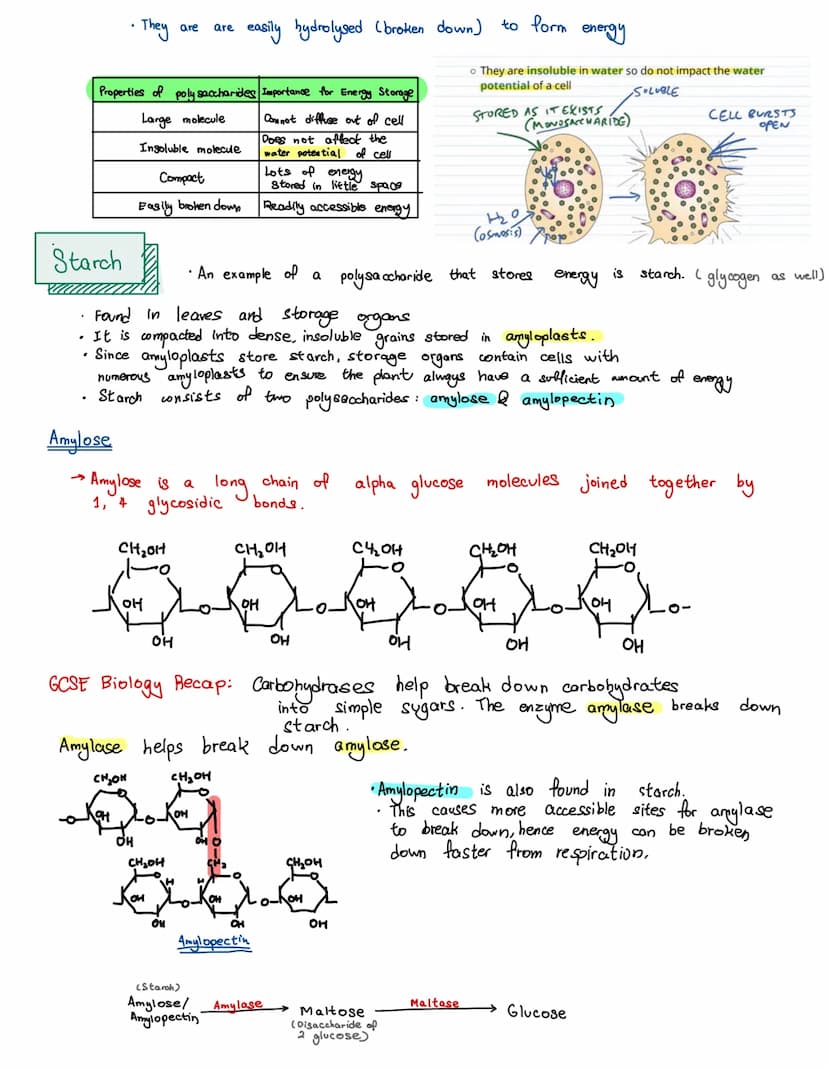 • They are are easily hydrolysed (broken down) to form energy
Properties of polysaccharides | Importance for Energy Storage
Large molecule | Cannot diffuse out of cell
Insoluble molecule | Does not affect the water potential of cell
Compact | Lots of energy stored in little space
Easily broken down | Readily accessible energy
○ They are insoluble in water so do not impact the water
potential of a cell
SOLUBLE
STORED AS IT EXISTS
(MONOSACCHARIDE)
CELL BURSTS
OPEN
H₂O
(osmosis)
Starch
• An example of a polysaccharide that stores energy is starch. (glycogen as well)
• Found in leaves and storage organs
• It is compacted into dense, insoluble grains stored in amyloplasts.
• Since amyloplasts store starch, storage organs contain cells with
numerous amyloplasts to ensure the plant always have a sufficient amount of energy
• Starch consists of two polysaccharides: amylose & amylopectin
Amylose
→ Amylose is a long chain of alpha glucose molecules joined together by
1, 4 glycosidic bonds.
CH₂OH CH₂OH CH₂OH CH₂OH CH₂OH
O O O O O
OH O OH O OH O OH O OH O-
OH OH OH OH OH
GCSE Biology Recap: Carbohydrases help break down carbohydrates
into simple sugars. The enzyme amylase breaks down
starch.
Amylase helps break down amylose.
CH₂OH CH₂OH
O OH O OH
OH OH O
CH₂OH CH₂ CH₂OH
H H
OH O OH O OH
OH OH OH
Amylopectin
• Amylopectin is also found in starch.
• This causes more accessible sites for amylase
to break down, hence energy can be broken
down faster from respiration.
(Starch)
Amylose/
Amylopectin
Amylase
Maltose
(Disaccharide of
2 glucose)
Maltase
Glucose